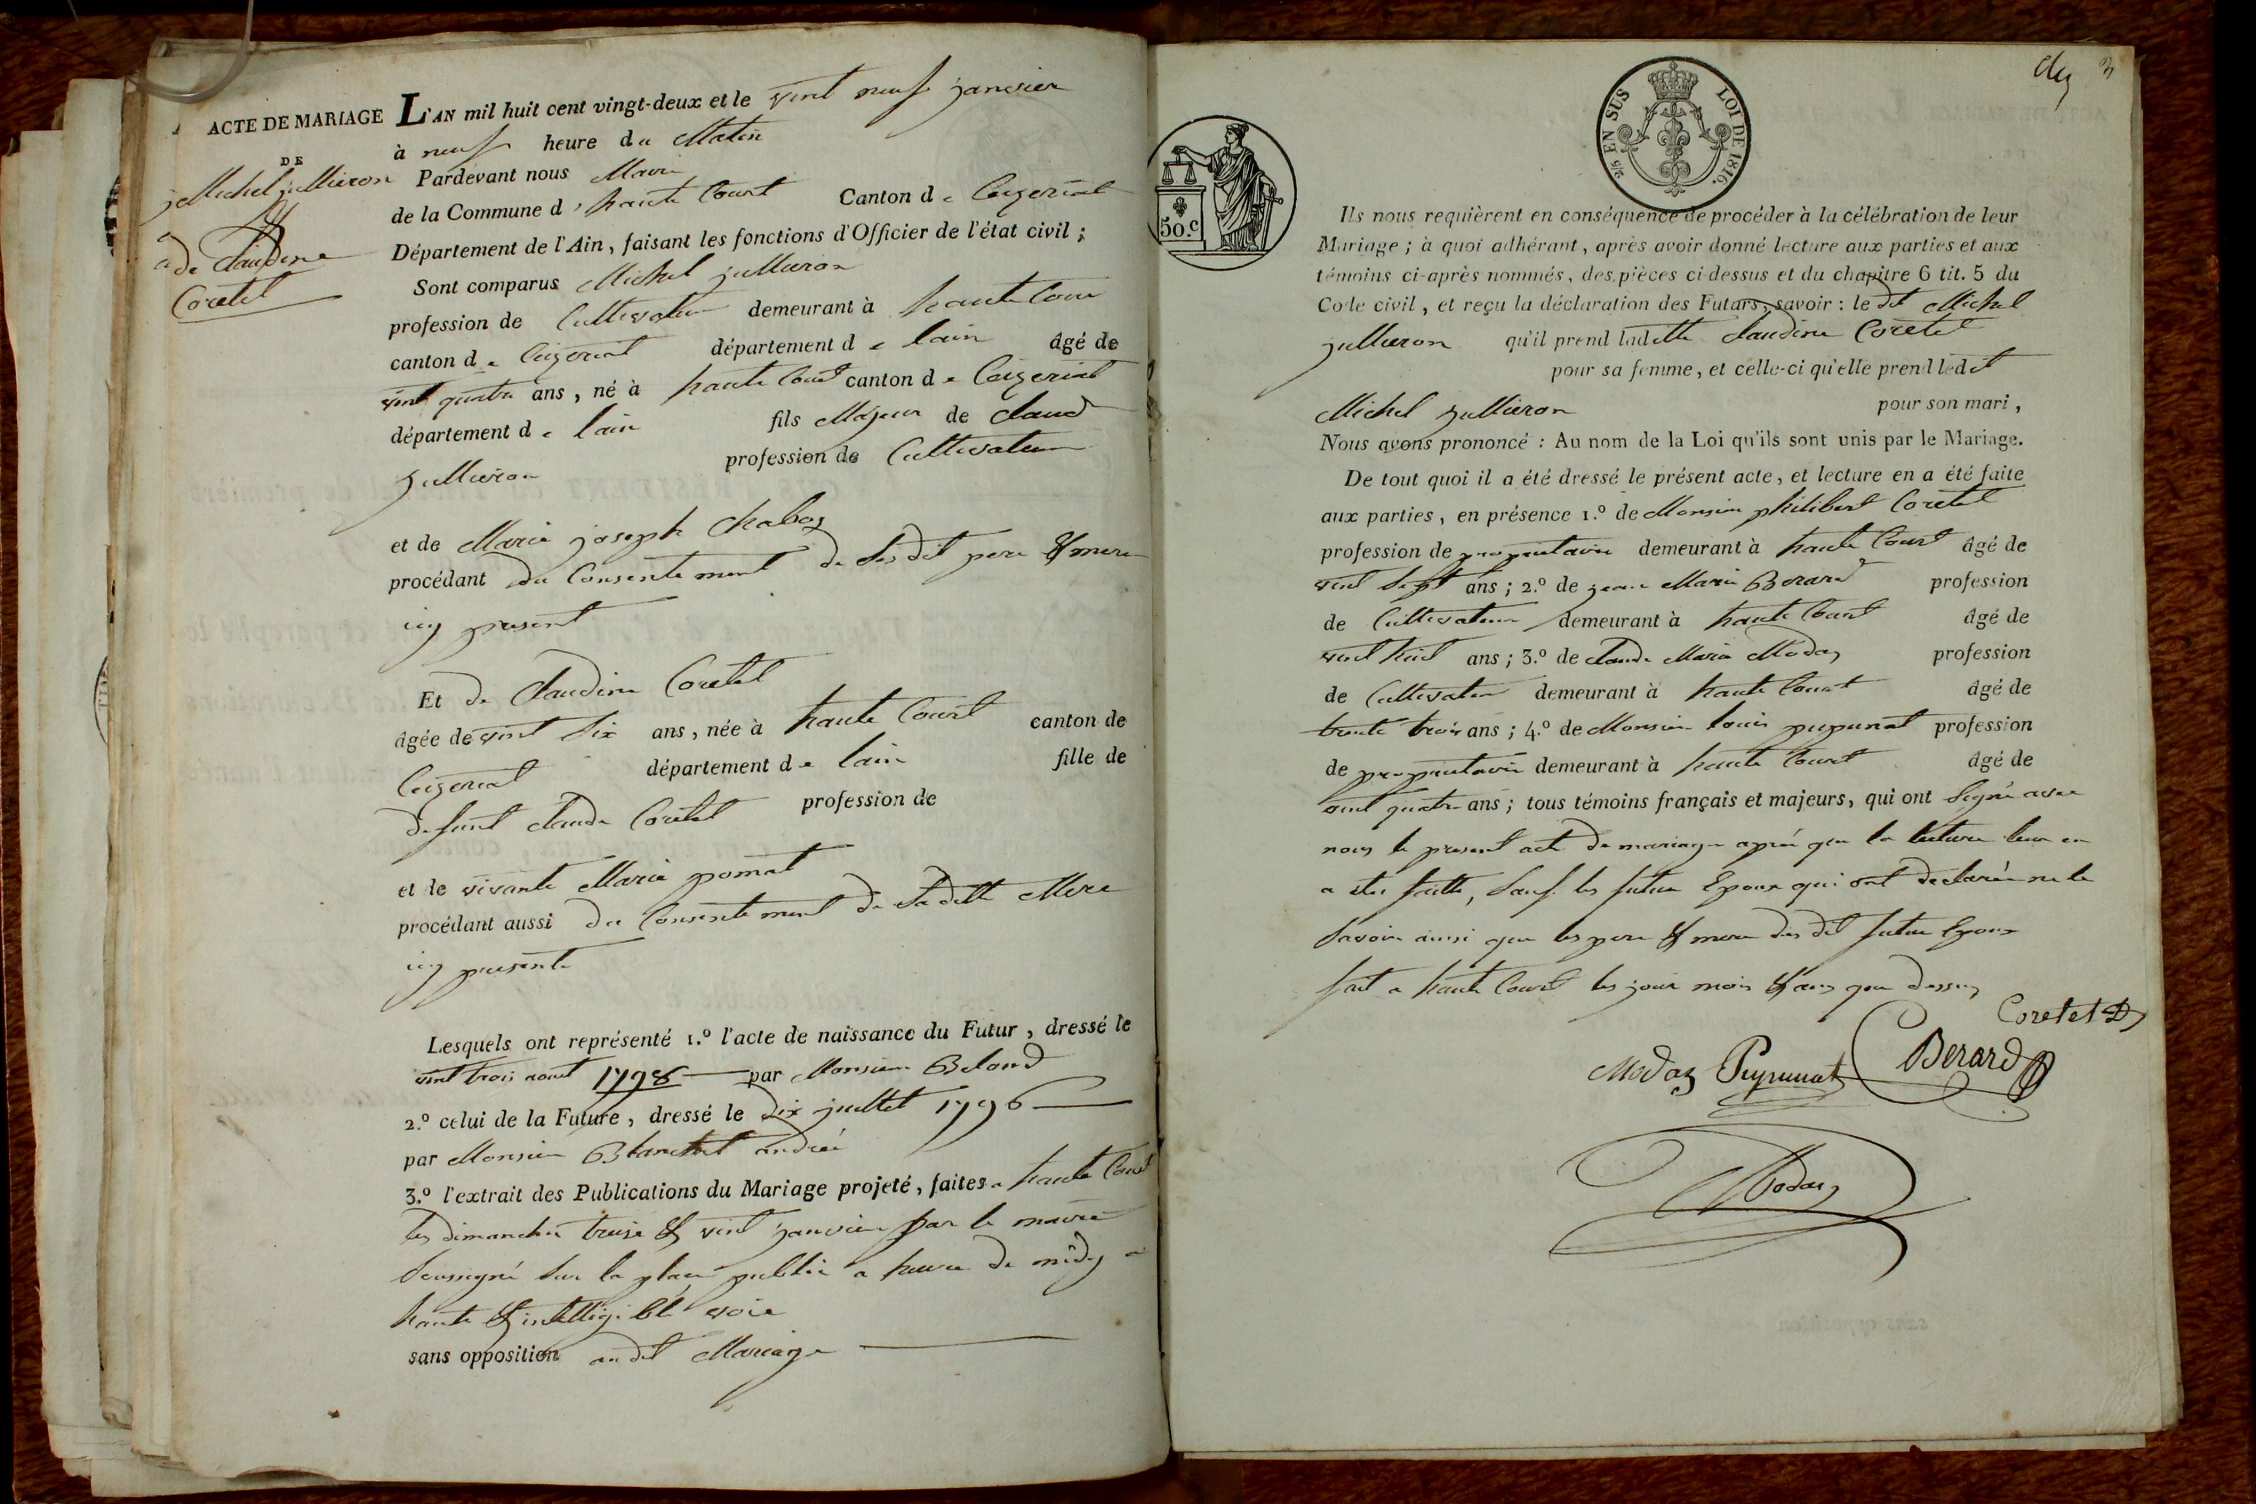 ACTE DE MARIAGE
DE
Michel jullieron
&
de Claudine
Coretet
L'AN mil huit cent vingt-deux et le vint neuf janvier
à neuf heure du Matin
Pardevant nous Maire
de la Commune d'haute Court Canton de Ceizeriat
Département de l'Ain, faisant les fonctions d'Officier de l'état civil;
Sont comparus Michel jullieron
profession de Cultivateur demeurant à haute Cour
canton de Ceizeriat département de lain âgé de
vint quatre ans, né à haute Court canton de Ceizeriat
département de lain fils Majeur de Claud
jullieron profession de Cultivateur
et de Marie joseph Chaboz
procédant du Consentement de ses dit pere & mere
icy present
Et de Claudine Coretet
âgée de vint six ans, née à haute Court canton de
Ceizeriat département de lain fille de
defunt Claude Coretet profession de
et de vivante Marie pomat
procédant aussi du Consentement de sa ditte Mere
icy presente
Lesquels ont représenté 1.º l'acte de naissance du Futur, dressé le
vint trois aout 1798 par Monsieur
2.º celui de la Future, dressé le dix juillet 1796
par Monsieur Blanchet andréé
3.º l'extrait des Publications du Mariage projeté, faites a haute Court
les dimanche treize & vint janvier par le maire
soussigné sur la place public a heure de midy a
haute & intelligible voie
sans opposition audit Mariage
EN SUS LOI DE 1816.
50.c
Ils nous requièrent en conséquence de procéder à la célébration de leur
Mariage; à quoi adhérant, après avoir donné lecture aux parties et aux
témoins ci-après nommés, des pièces ci-dessus et du chapitre 6 tit. 5 du
Code civil, et reçu la déclaration des Futurs, savoir: le dit Michel
jullieron qu'il prend laditte Claudine Coretet
pour sa femme, et celle-ci qu'elle prend ledit
Michel jullieron pour son mari,
Nous avons prononcé: Au nom de la Loi qu'ils sont unis par le Mariage.
De tout quoi il a été dressé le présent acte, et lecture en a été faite
aux parties, en présence 1.º de Monsieur philibert Coretet
profession de propriétaire demeurant à haute Court âgé de
vint sept ans; 2.º de jean Marie Berard profession
de Cultivateur demeurant à haute Court âgé de
vint huit ans; 3.º de Claude Marie Modas profession
de Cultivateur demeurant à haute Court âgé de
trente trois ans; 4.º de Monsieur louis pupunat profession
de propriétaire demeurant à haute Court âgé de
vint quatre ans; tous témoins français et majeurs, qui ont signé avec
nous le present acte de mariage aprés que la lecture leur en
a été faitte, sauf les futur Epoux qui ont declarée ne le
savoir ainsi que les pere & mere des dit futur Epoux
fait a haute Court les jour mois & an que dessus
Coretet
Modas Pupunat Berard
Modas